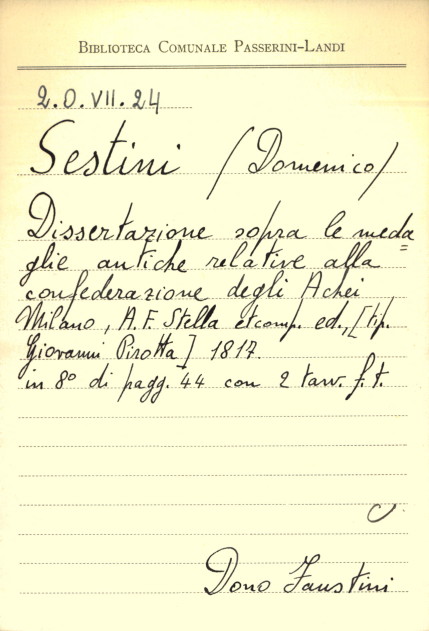 BIBLIOTECA COMUNALE PASSERINI-LANDI
2.O.VII.24
Sestini (Domenico)
Dissertazione sopra le meda=
glie antiche relative alla
confederazione degli Achei
Milano, A.F. Stella et comp. ed., [tip.
Giovanni Pirotta] 1817.
in 8° di pagg. 44 con 2 tavv. f.t.
C
Dono Faustini